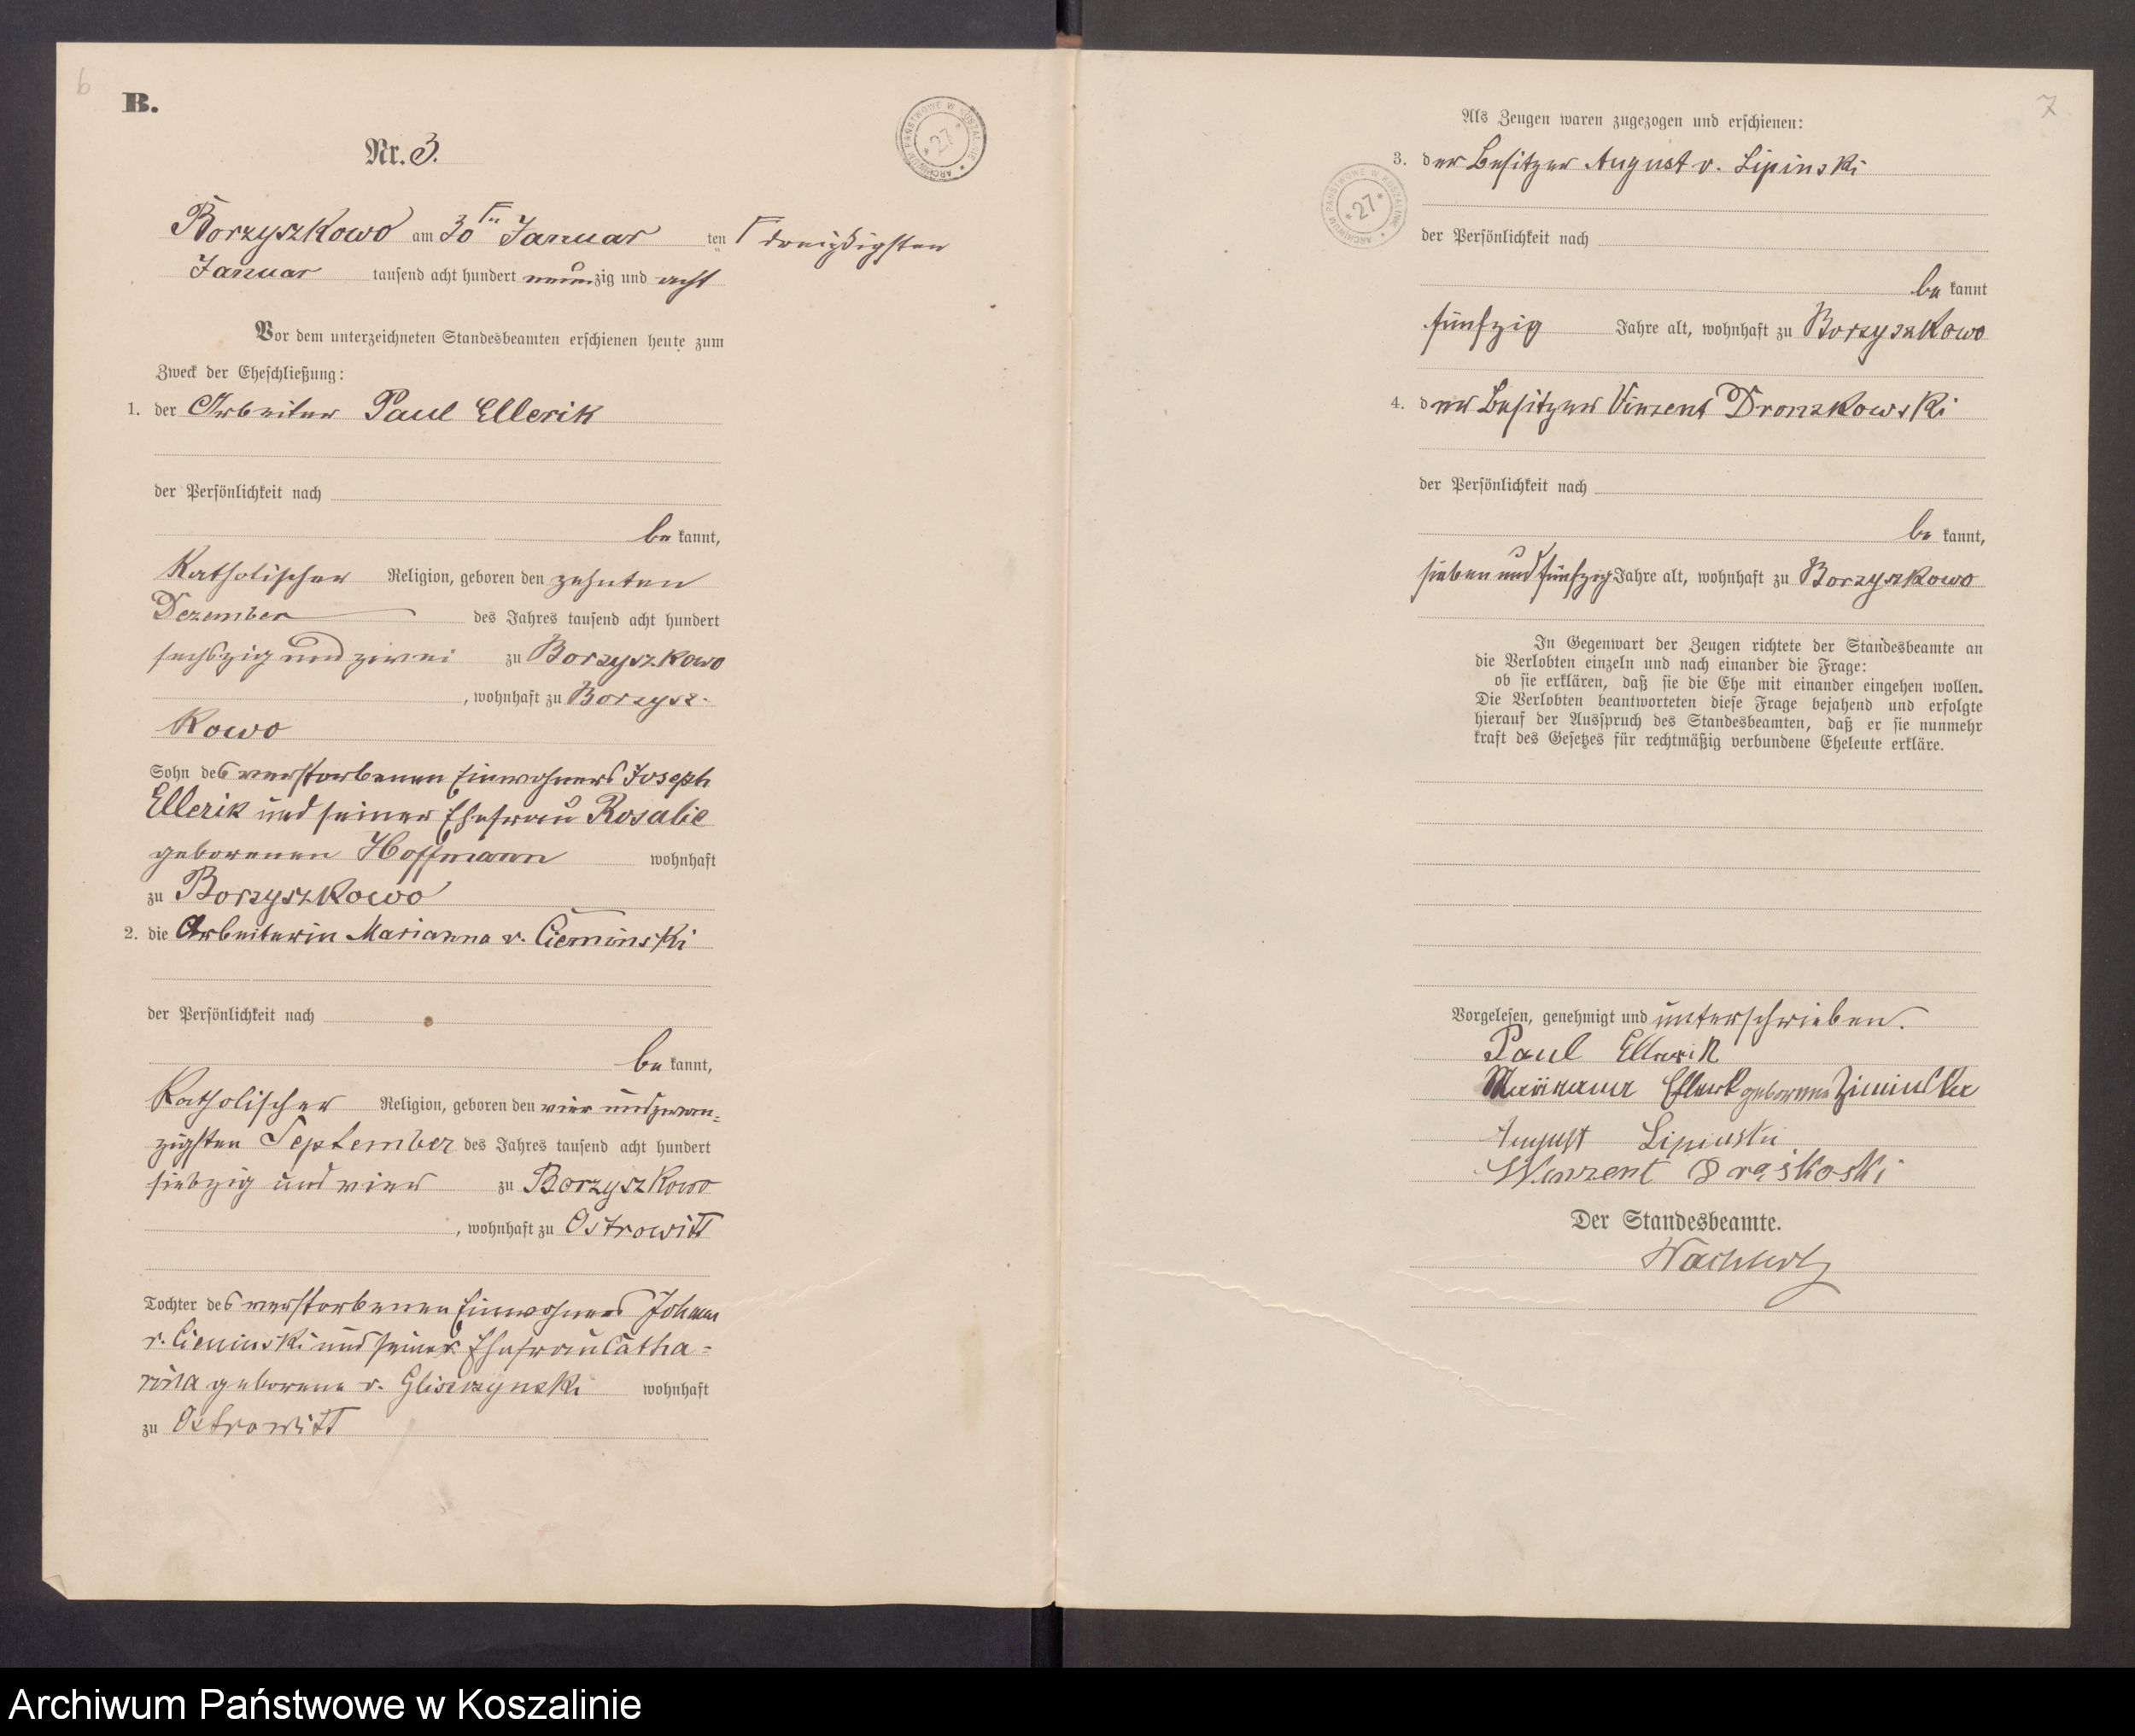 6
B.
Nr. 3.
ARCHIWUM PAŃSTWOWE W KOSZALINIE * 27 *
Borzyszkowo am 30 Januar ten Γ dreißigsten
Januar tausend acht hundert neunzig und acht
Vor dem unterzeichneten Standesbeamten erschienen heute zum
Zweck der Eheschließung:
1. der Arbeiter Paul Ellerik
der Persönlichkeit nach
be kannt,
Katholischer Religion, geboren den zehnten
Dezember des Jahres tausend acht hundert
sechszig und zwei zu Borzyszkowo
, wohnhaft zu Borzysz-
kowo
Sohn des verstorbenen Einwohners Joseph
Ellerik und seiner Ehefrau Rosalie
geborenen Hoffmann wohnhaft
zu Borzyszkowo
2. die Arbeiterin Marianna v. Cieminski
der Persönlichkeit nach
be kannt,
Katholischer Religion, geboren den vier und zwan-
zigsten September des Jahres tausend acht hundert
siebzig und vier zu Borzyszkowo
, wohnhaft zu Ostrowitt
Tochter des verstorbenen Einwohners Johann
v. Cieminski und seiner Ehefrau Catha-
rina geborene v. Gliszczynski wohnhaft
zu Ostrowitt
7
Als Zeugen waren zugezogen und erschienen:
3. der Besitzer August v. Lipinski
ARCHIWUM PAŃSTWOWE W KOSZALINIE * 27 *
der Persönlichkeit nach
be kannt
fünfzig Jahre alt, wohnhaft zu Borzyszkowo
4. der Besitzer Vinzent Dronzkowski
der Persönlichkeit nach
be kannt,
sieben und fünfzig Jahre alt, wohnhaft zu Borzyszkowo
In Gegenwart der Zeugen richtete der Standesbeamte an
die Verlobten einzeln und nach einander die Frage:
ob sie erklären, daß sie die Ehe mit einander eingehen wollen.
Die Verlobten beantworteten diese Frage bejahend und erfolgte
hierauf der Ausspruch des Standesbeamten, daß er sie nunmehr
kraft des Gesetzes für rechtmäßig verbundene Eheleute erkläre.
Vorgelesen, genehmigt und unterschrieben.
Paul Ellerik
Ellerik geborene
August Lipinski
Winzent
Der Standesbeamte.
Archiwum Państwowe w Koszalinie